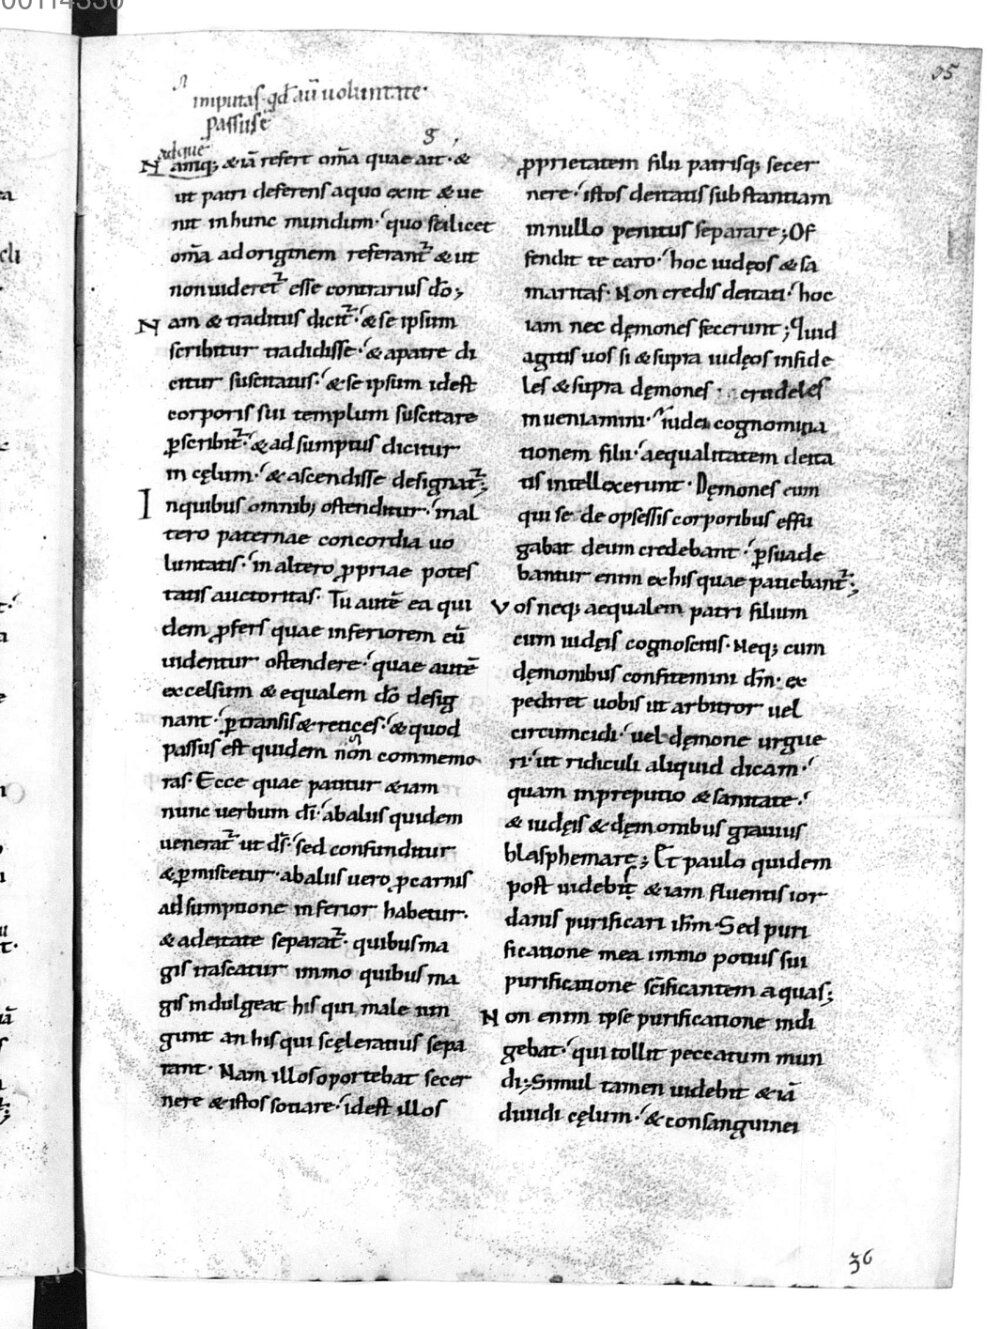 00114330
35
imputas· qđ aũ uoluntate·
passus ē
adque
Namq; & iã refert om̃a quae ait· &
ut patri deferens a quo exiit & ue
nit in hunc mundum· quo scilicet
om̃a ad originem referant᷑ & ut
non uideret᷑ esse contrarius dõ;
Nam & traditus dicit᷑· & se ipsum
scribitur tradidisse· & a patre di
citur suscitatus· & se ipsum idest
corporis sui templum suscitare
ꝑscribit᷑· & adsumptus dicitur
in cęlum· & ascendisse designat᷑;
Inquibus omnib; ostenditur· in al
tero paternae concordia uo
luntatis· in altero ꝓpriae potes
tatis auctoritas· Tu autẽ ea qui
dem ꝓfers quae inferiorem eũ
uidentur ostendere· quae autẽ
excelsum & equalem dõ desig
nant· ꝑtransis & retices· & quod
passus est quidem non commemo
ras· Ecce quae patitur & iam
nunc uerbum dĩ· ab aliis quidem
uenerat᷑ ut ds̃· sed confunditur
& ꝑmiscetur· ab aliis uero ꝓ carnis
adsumptione inferior habetur·
& a deitate separat᷑· quibus ma
gis irascatur immo quibus ma
gis indulgeat his qui male iun
gunt an his qui scęleratius sepa
rant· Nam illos oportebat secer
nere & istos sociare· idest illos
ꝓprietatem filii patrisq; secer
nere· istos deitatis substantiam
in nullo penitus separare; Of
fendit te caro· hoc iudęos & sa
maritas· Non credis deitati· hoc
iam nec dęmones fecerunt; Quid
agitis uos si & supra iudęos infide
les & supra dęmones crudeles
inueniamini· iudei cognomina
tionem filii· aequalitatem deita
tis intellexerunt· Dęmones cum
qui se de opsessis corporibus effu
gabat deum credebant· ꝑsuade
bantur enim ex his quae patiebant᷑;
Vos neq; aequalem patri filium
cum iudęis cognoscitis· Neq; cum
dęmonibus confitemini dñm· ex
pediret uobis ut arbitror uel
circumcidi· uel dęmone urgue
ri· ut ridiculi aliquid dicam·
quam in preputio & sanitate·
& iudęis & dęmonibus grauius
blasphemare; Et paulo quidem
post uidebit᷑ & iam fluentis ior
danis purificari ihm̃· Sed puri
ficatione mea immo potius sui
purificatione scĩficantem aquas;
Non enim ipse purificatione indi
gebat· qui tollit peccatum mun
di; Simul tamen uidebit & iã
diuidi cęlum· & consanguinei
36